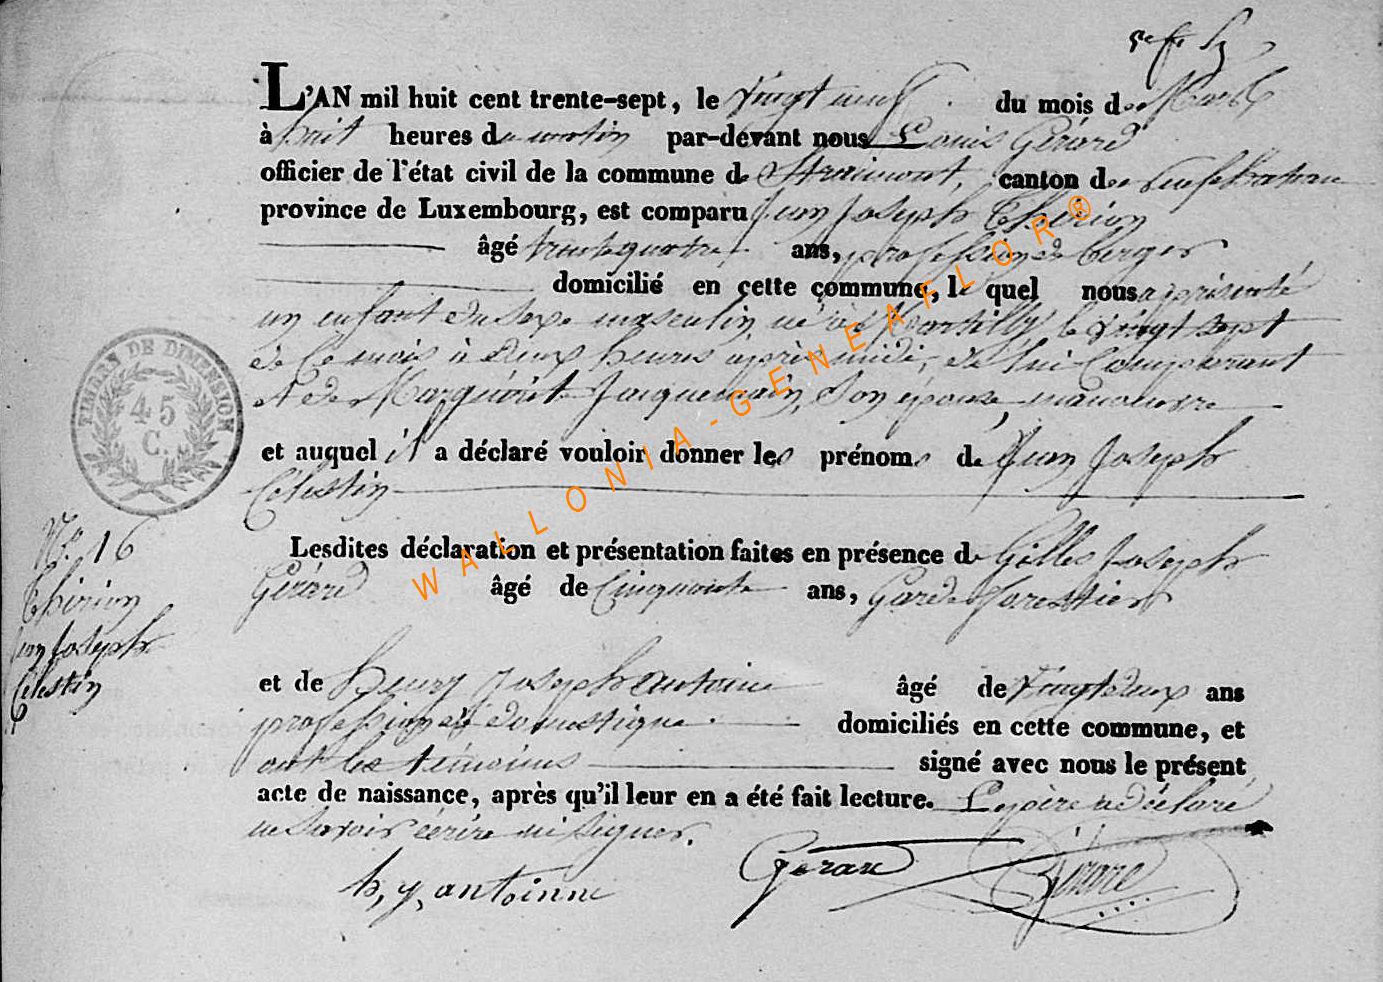 L'AN mil huit cent trente-sept, le Vingt neuf du mois de Mars
à huit heures du matin par-devant nous Louis Gérard
officier de l'état civil de la commune de Straimont, canton de Neufchateau
province de Luxembourg, est comparu Jean Joseph Thirion
âgé trente quatre ans, profession de berger
domicilié en cette commune, lequel nous a présenté
un enfant du sexe masculin né à Martilly le vingt sept
de ce mois à deux heures après midi, de lui Comparant
et de Marguerite Jacquemain, son épouse, manouvre
et auquel il a déclaré vouloir donner les prénoms de Jean Joseph
Célestin
Lesdites déclaration et présentation faites en présence de Gilles Joseph
Gérard âgé de Cinquante ans, Garde forestier
N° 16
Thirion
Jean Joseph
Célestin
et de henry Joseph antoine âgé de Vingt deux ans
profession de domestique domiciliés en cette commune, et
ont les témoins signé avec nous le présent
acte de naissance, après qu'il leur en a été fait lecture. Le père a déclaré
ne savoir écrire ni signer.
h, y, antoinne Gérard Gérard
TIMBRE DE DIMENSION
45
C.
WALLONIA-GENEALLOR®